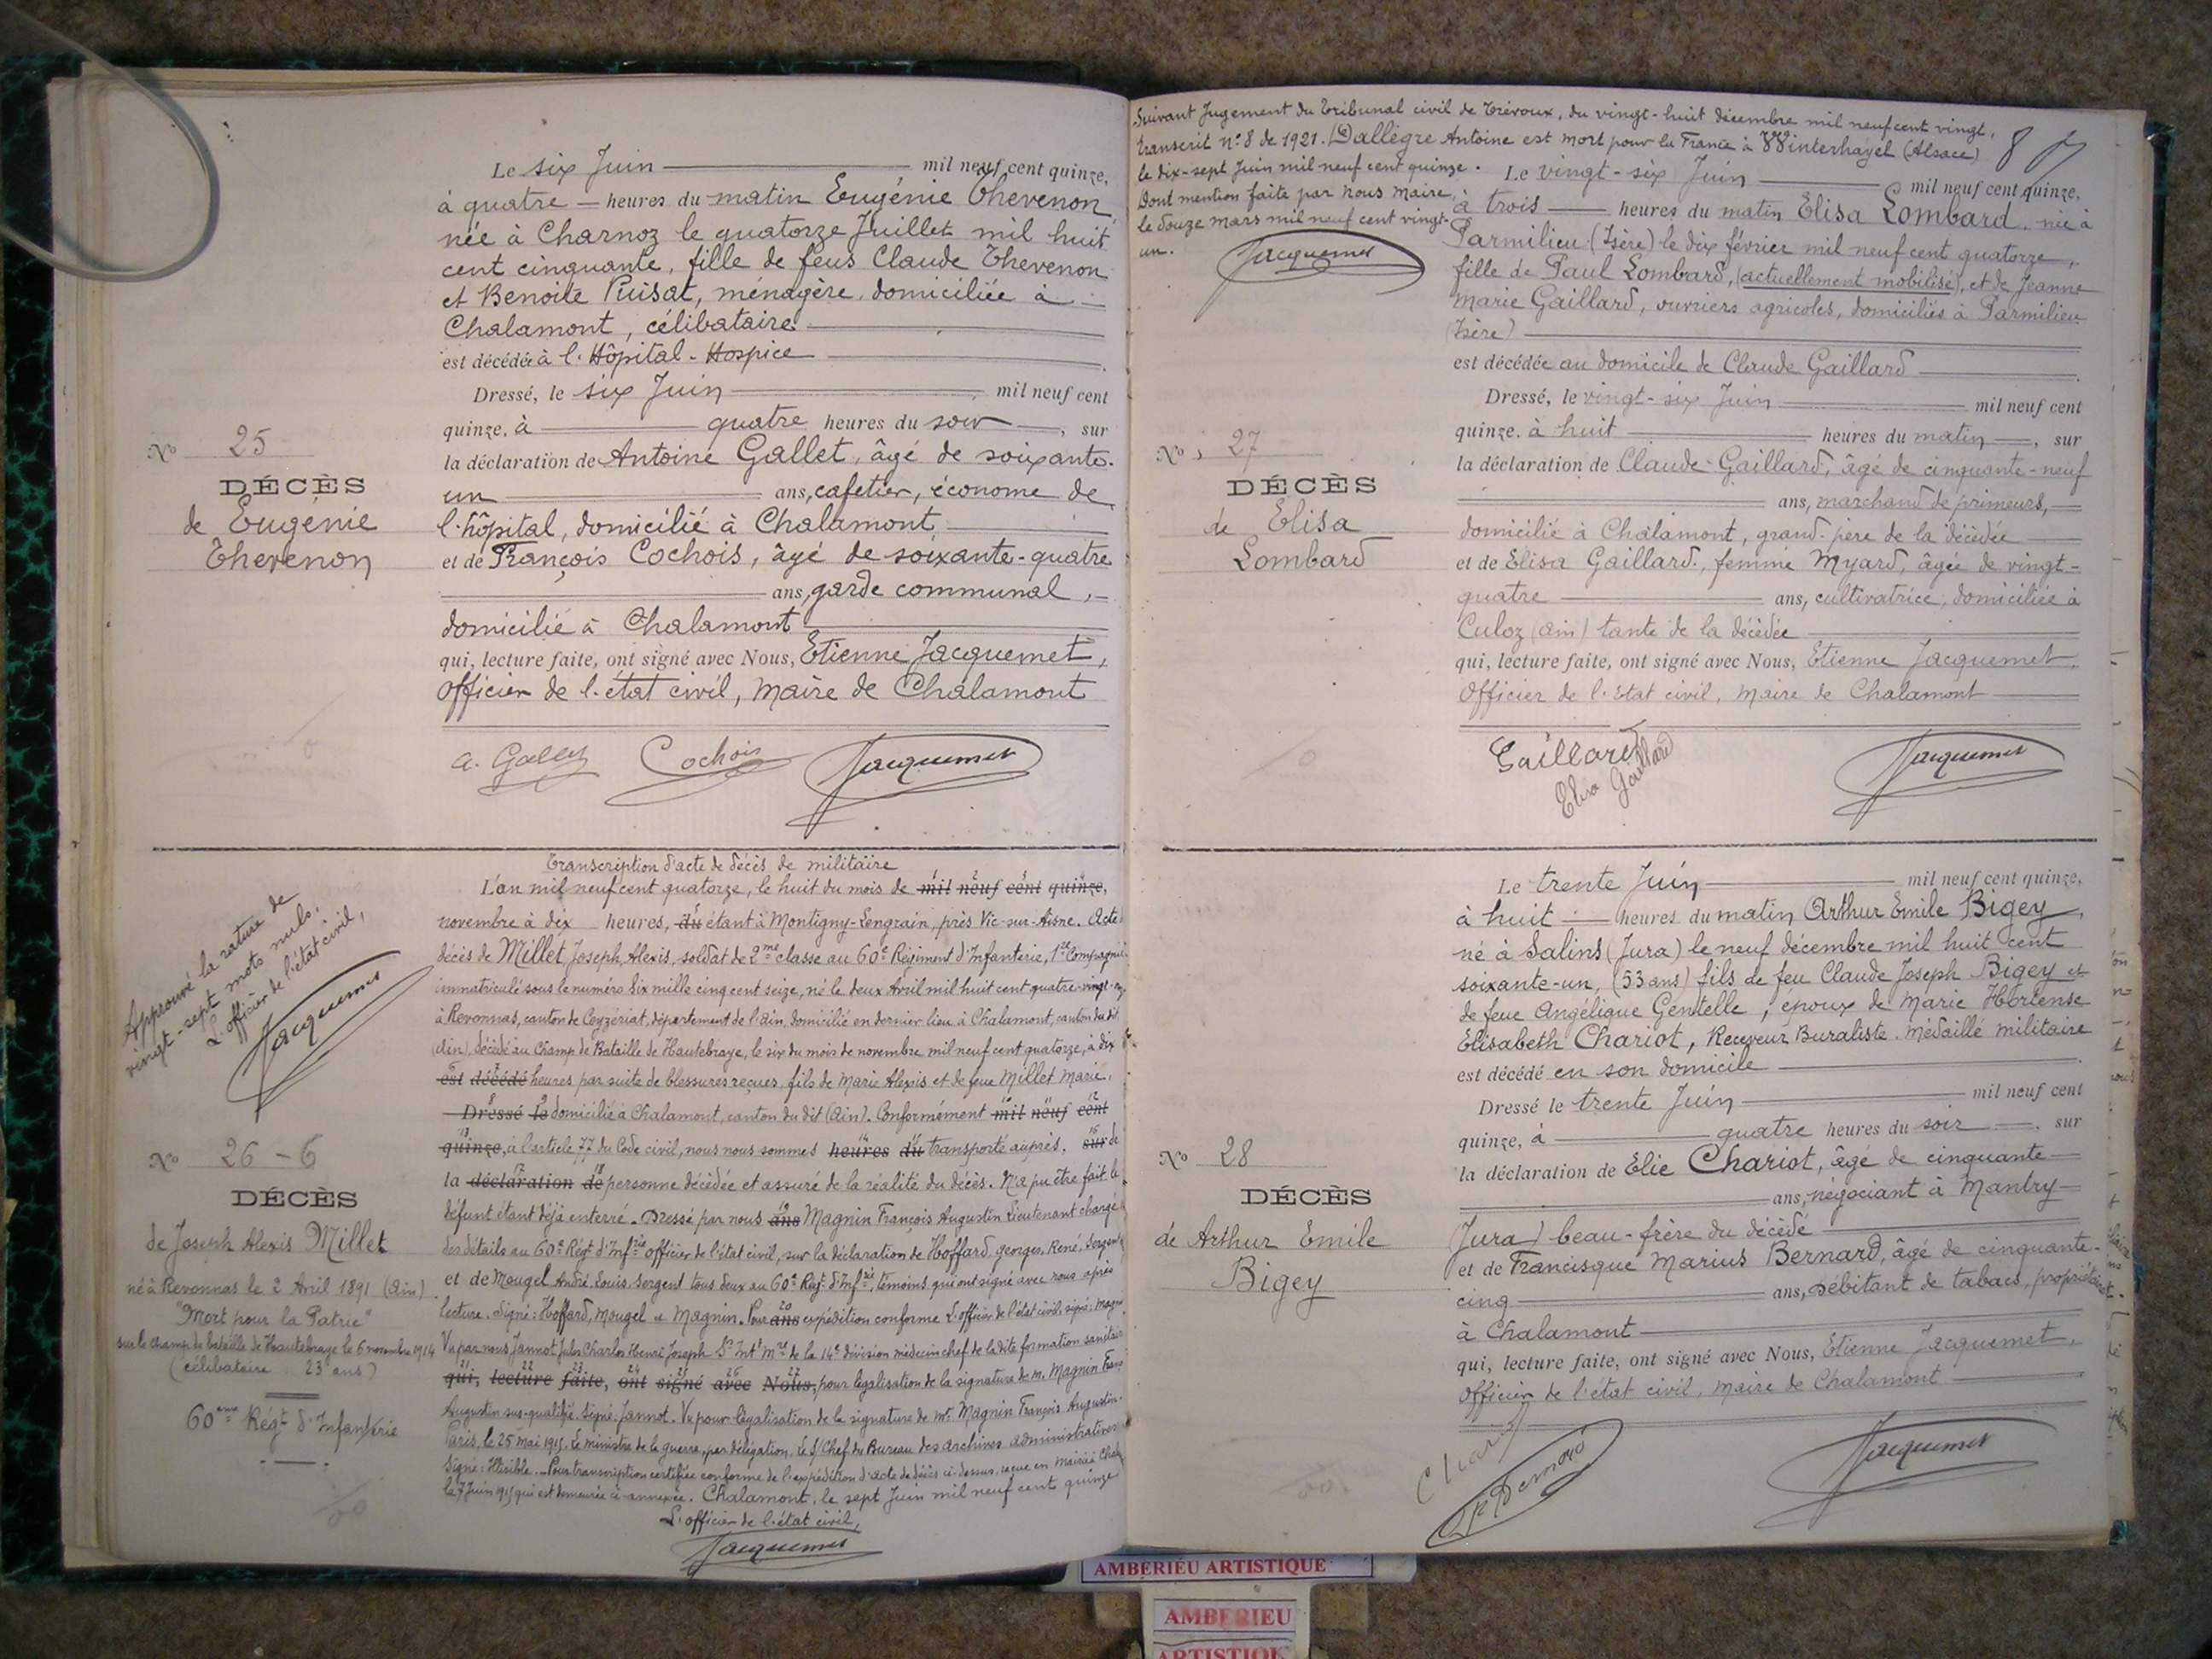 Le six Juin mil neuf cent quinze,
à quatre heures du matin Eugénie Thevenon,
née à Charnoz le quatorze Juillet mil huit
cent cinquante, fille de feus Claude Thevenon
et Benoite Puisat, ménagère, domiciliée à
Chalamont, célibataire
est décédée à l'Hôpital-Hospice
Dressé, le six Juin mil neuf cent
quinze, à quatre heures du soir, sur
la déclaration de Antoine Gallet, âgé de soixante-
un ans, cafetier, économe de
l'hôpital, domicilié à Chalamont
et de François Cochois, âgé de soixante-quatre
ans, garde communal,
domicilié à Chalamont
qui, lecture faite, ont signé avec Nous, Etienne Jacquemet,
Officier de l'état civil, Maire de Chalamont
A. Gallet Cochois Jacquemet
No 25
DÉCÈS
de Eugénie
Thevenon
Transcription d'acte de décès de militaire
L'an mil neuf cent quatorze, le huit du mois de mil neuf cent quinze,
novembre à dix heures, du étant à Montigny-Lengrain, près Vic-sur-Aisne. Acte
décès de Millet Joseph, Alexis, soldat de 2me classe au 60e Régiment d'Infanterie, 1re Compagnie
immatriculé sous le numéro Six mille cinq cent seize, né le deux Avril mil huit cent quatre-vingt-
à Revonnas, canton de Ceyzériat, département de l'Ain, domicilié en dernier lieu à Chalamont, canton du dit
(Ain), décédé au Champ de Bataille de Hautebraye, le six du mois de novembre mil neuf cent quatorze, à dix
est décédé heures par suite de blessures reçues, fils de Marie Alexis et de feue Millet Marie,
Dressé le domicilié à Chalamont, canton du dit (Ain). Conformément mil neuf cent
quinze, à l'article 77 du Code civil, nous nous sommes heures du transporté auprès. sur de
la déclaration de personne décédée et assuré de la réalité du décès. N'a pu être fait le
défunt étant déjà enterré. Dressé par nous ans Magnin François Augustin Lieutenant chargé
des détails au 60e Régt d'Infrie officier de l'état civil, sur la déclaration de Hoffard, Georges, René, Sergent
et de Mougel André Louis Sergent tous deux au 60e Régt d'Infrie, témoins, qui ont signé avec nous après
lecture. Signé: Hoffard, Mougel et Magnin. Pour ans expédition conforme L'officier de l'état civil, signé: Magnin
Vu par nous Jannot Jules Charles Henri Joseph de la 14e division médecin chef de la dite formation sanitaire
qui, lecture faite, ont signé avec Nous, pour légalisation de la signature de M. Magnin Franç
Augustin sus-qualifié. Signé: Jannot. Vu pour légalisation de la signature de Mr Magnin François Augustin.
Paris, le 25 mai 1915. Le ministre de la guerre, par délégation, le s/Chef du Bureau des archives administratives
Signé: Illisible. Pour transcription certifiée conforme de l'expédition d'acte de décès ci-dessus, reçue en mairie à
le 7 Juin 1915 qui est demeurée ci-annexée. Chalamont, le sept Juin mil neuf cent quinze
L'officier de l'état civil,
Jacquemet
Approuvé la rature de
vingt-sept mots nuls.
L'officier de l'état civil,
Jacquemet
No 26-6
DÉCÈS
de Joseph Alexis Millet
né à Revonnas le 2 Avril 1891 (Ain)
"Mort pour la Patrie"
sur le champ de bataille de Hautebraye le 6 novembre 1914
(célibataire 23 ans)
60eme Régt d'Infanterie
Suivant Jugement du Tribunal civil de Trévoux, du vingt-huit décembre mil neuf cent vingt,
transcrit n° 8 de 1921. Dallègre Antoine est mort pour la France à Winterhagel (Alsace)
le dix-sept Juin mil neuf cent quinze.
Dont mention faite par nous Maire,
le douze mars mil neuf cent vingt-
un.
Jacquemet
Le vingt-six Juin mil neuf cent quinze,
à trois heures du matin Elisa Lombard, née à
Parmilieu (Isère) le dix février mil neuf cent quatorze,
fille de Paul Lombard, (actuellement mobilisé), et de Jeanne
Marie Gaillard, ouvriers agricoles, domiciliés à Parmilieu
(Isère)
est décédée au domicile de Claude Gaillard
Dressé, le vingt-six Juin mil neuf cent
quinze, à huit heures du matin, sur
la déclaration de Claude Gaillard, âgé de cinquante-neuf
ans, marchand de primeurs,
domicilié à Chalamont, grand-père de la décédée
et de Elisa Gaillard, femme Myard, âgée de vingt-
quatre ans, cultivatrice, domiciliée à
Culoz (Ain) tante de la décédée
qui, lecture faite, ont signé avec Nous, Etienne Jacquemet,
Officier de l'état civil, Maire de Chalamont
Gaillard Elisa Gaillard Jacquemet
No 27
DÉCÈS
de Elisa
Lombard
Le trente Juin mil neuf cent quinze,
à huit heures du matin Arthur Emile Bigey,
né à Salins (Jura) le neuf décembre mil huit cent
soixante-un, (53 ans) fils de feu Claude Joseph Bigey et
de feue Angélique Gentelle, époux de Marie Hortense
Elisabeth Chariot, Receveur Buraliste. Médaillé militaire
est décédé en son domicile
Dressé le trente Juin mil neuf cent
quinze, à quatre heures du soir, sur
la déclaration de Elie Chariot, âgé de cinquante
ans, négociant à Mantry
(Jura) beau-frère du décédé
et de Francisque Marius Bernard, âgé de cinquante-
cinq ans, débitant de tabacs, propriétaire
à Chalamont
qui, lecture faite, ont signé avec Nous, Etienne Jacquemet,
Officier de l'état civil, Maire de Chalamont
Jacquemet
No 28
DÉCÈS
de Arthur Emile
Bigey
AMBERIEU ARTISTIQUE
AMBERIEU
ARTISTIQUE